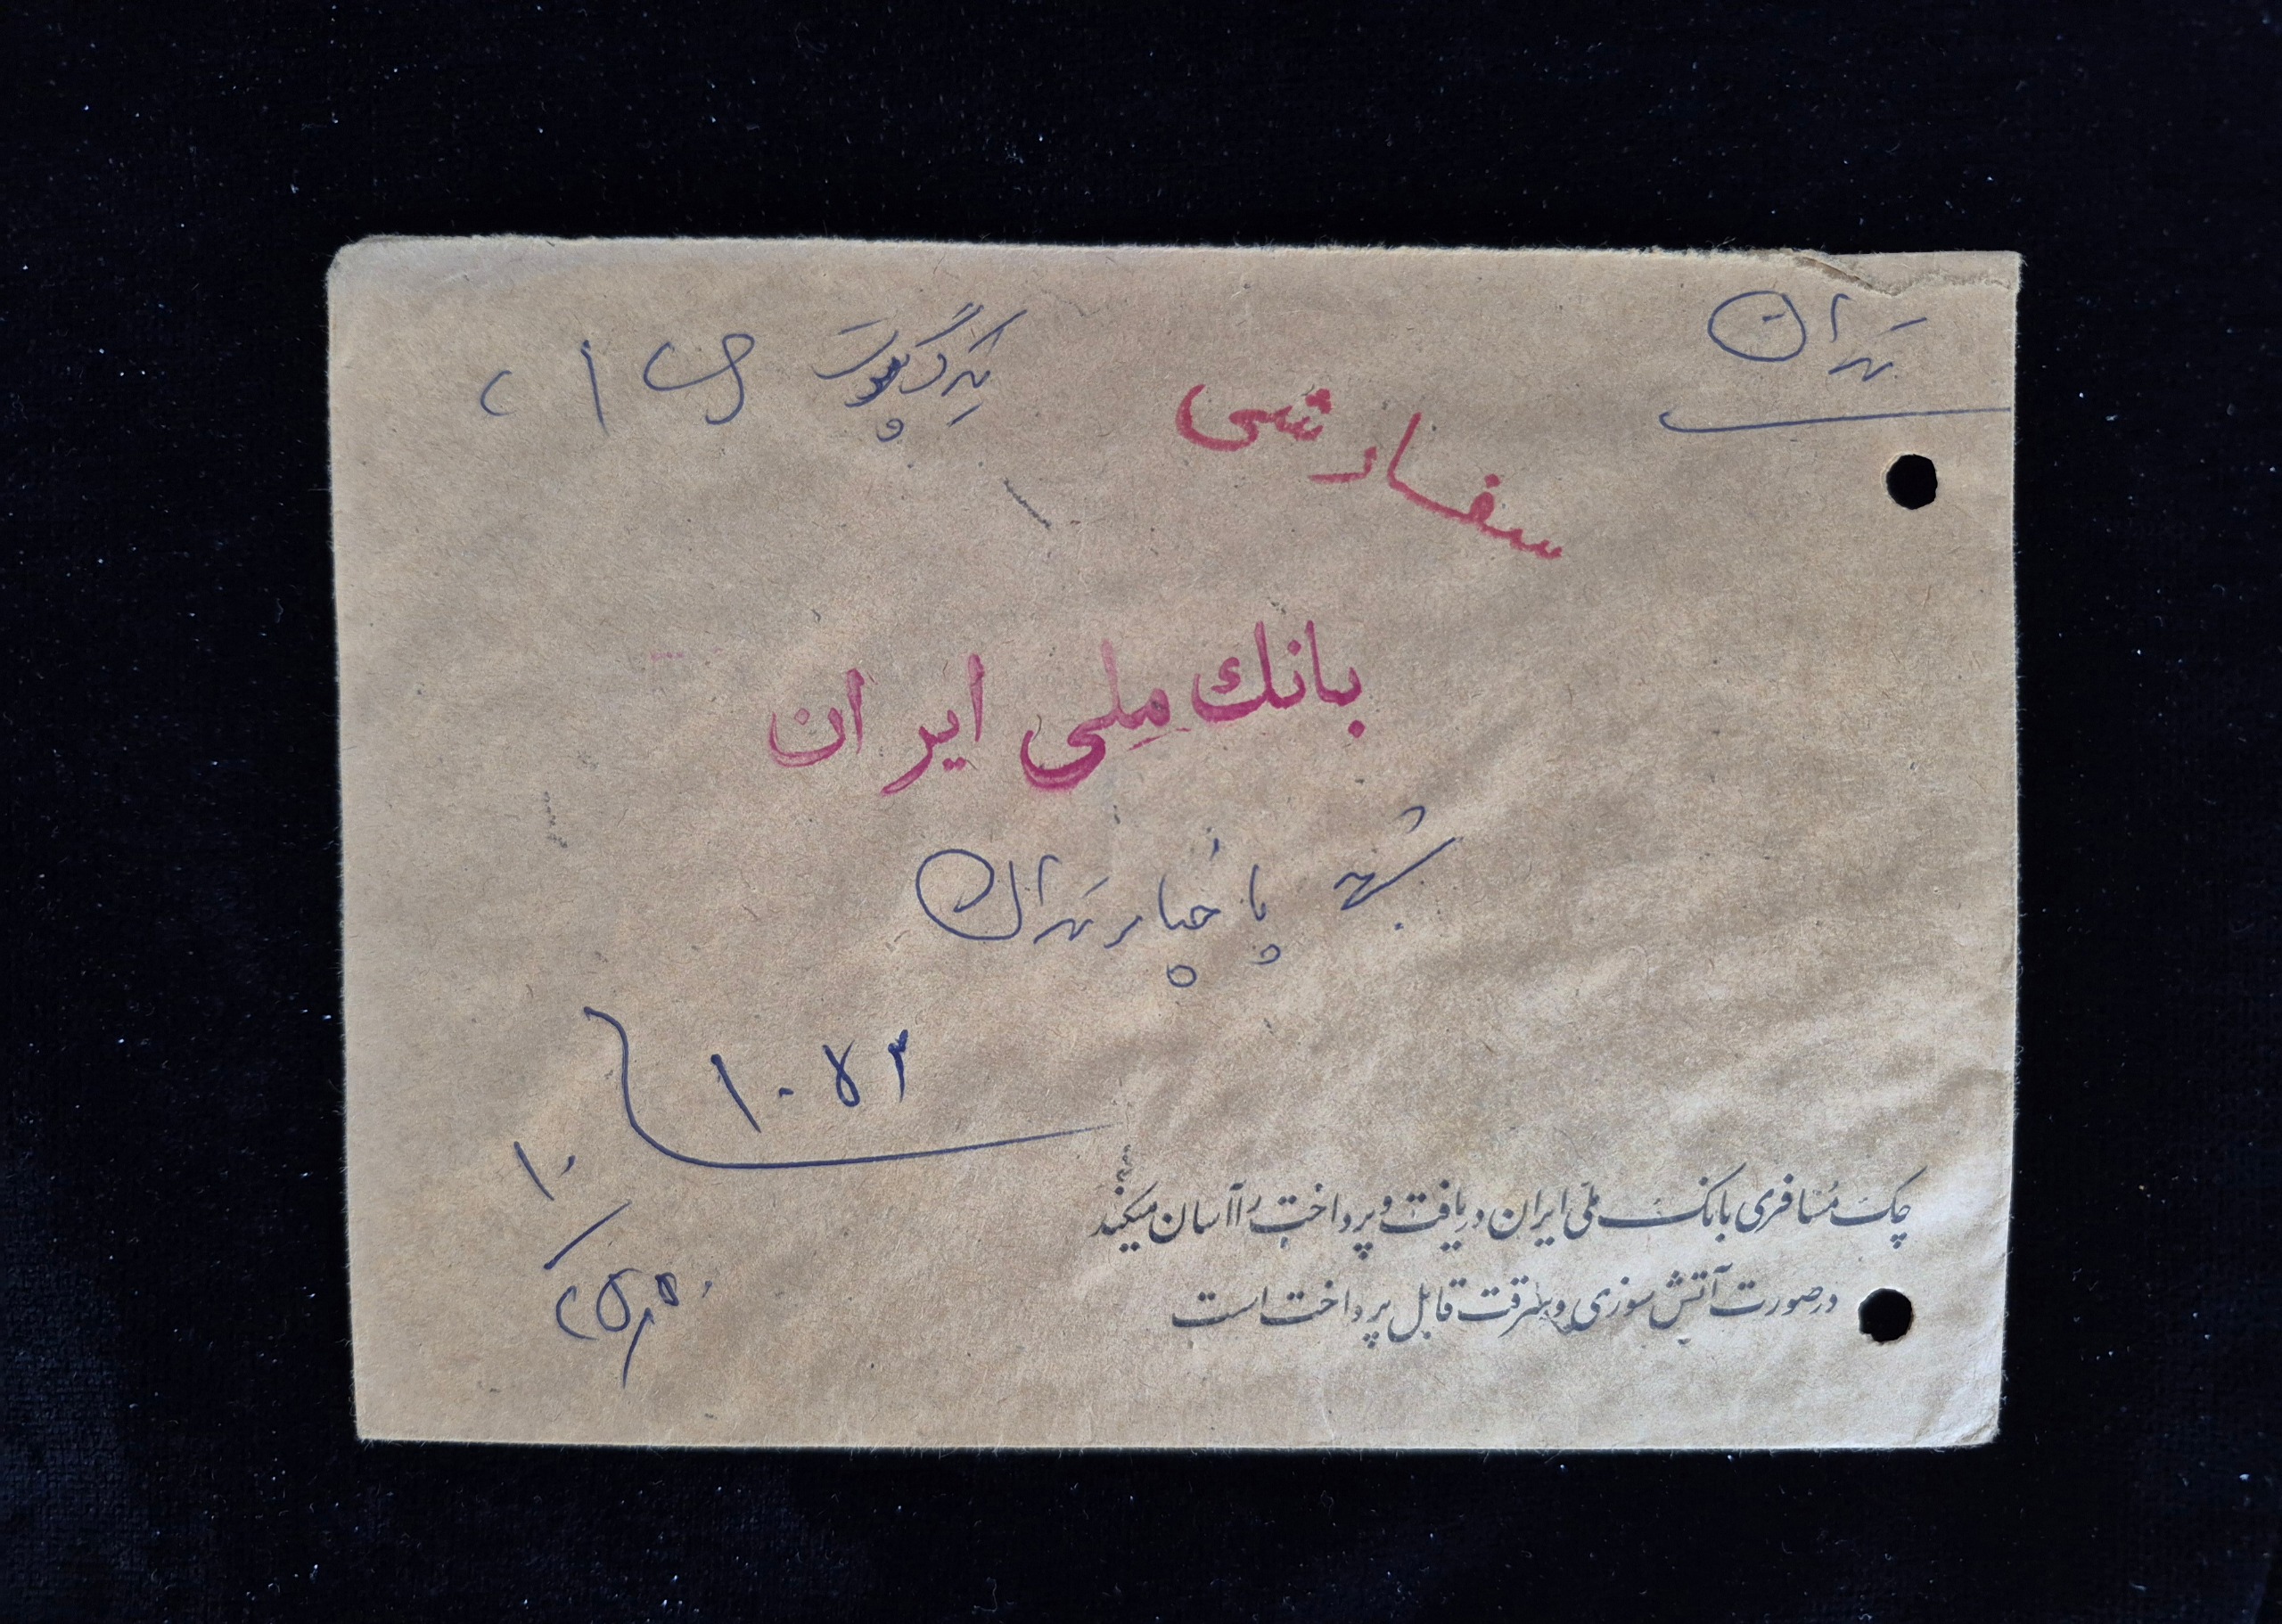 تهران
سفارشی
بانک ملی ایران
شعبه پاچنار تهران
۱۰۵۳
چک مسافری بانک ملی ایران دریافت و پرداخت را آسان میکند
درصورت آتش سوزی و سرقت قابل پرداخت است